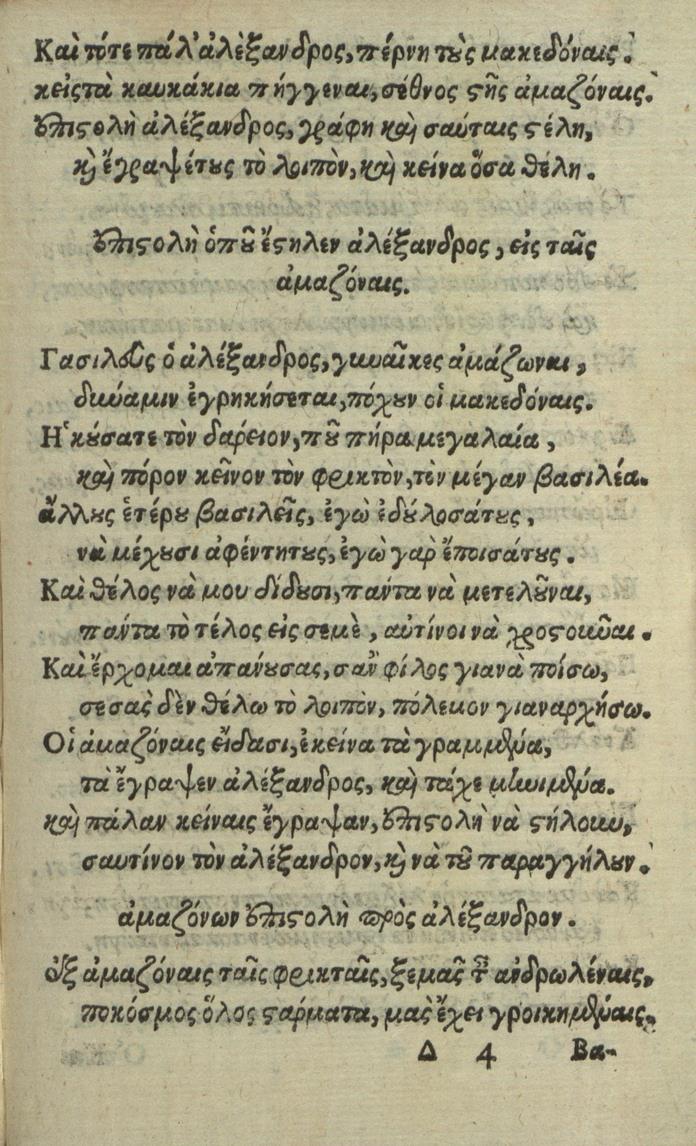 Καὶ τότε πάλ' ἀλέξανδρος, πέρνη τοὺς μακεδόναις.
κεἰς τὰ καυκάκια πήγγεναι, σέθνος τῆς ἀμαζόναις.
ἐπιστολὴ ἀλέξανδρος, γράφη καὶ σαύταις στέλη,
καὶ ἔγραψέτους τὸ λοιπὸν, καὶ κείνα ὅσα θέλη.
ἐπιστολὴ ὁποῦ ἔστηλεν ἀλέξανδρος, εἰς ταῖς
ἀμαζόναις.
Γασιλεὺς ὁ ἀλέξανδρος, γυναῖκες ἀμάζωναι,
δύναμιν ἐγρηκήσεται, πόχουν οἱ μακεδόναις.
Ἡκούσατε τὸν δαρειον, ποῦ πήρα μεγαλαία,
καὶ πόρον κεῖνον τὸν φρικτὸν, τὸν μέγαν βασιλέα.
ἄλλους ἑτέρου βασιλεῖς, ἐγὼ ἐδούλοσάτους,
νὰ μέχουσι ἀφέντητους, ἐγὼ γαρ ἔποισάτους.
Καὶ θέλος νὰ μου δίδουσι, πάντα νὰ μετελοῦναι,
παντα τὸ τέλος εἰς σεμὲ, αὐτίνοι νὰ χροστοικῦαι.
Καὶ ἔρχομαι ἀπανουσας, σαν φίλος γιανὰ ποίσω,
σεσας δὲν θέλω τὸ λοιπὸν, πόλεμον γιαναρχήσω.
Οἱ ἀμαζόναις εἴδασι, ἐκείνα τὰ γραμμένα,
τὰ ἔγραψεν ἀλέξανδρος, καὶ τάχε μηνιμένα.
καὶ πάλαν κείναις ἔγραψαν, ἐπιστολὴ νὰ στήλουν,
σαυτίνον τὸν ἀλέξανδρον, καὶ νὰ τοῦ παραγγήλουν.
ἀμαζόνων ἐπιστολὴ πρὸς ἀλέξανδρον.
ἐξ ἀμαζόναις ταῖς φρικταῖς, ξεμας τῶν ανδρωλέναις,
ποκόσμος ὅλος σταρματα, μας ἔχει γροικημέναις.
Δ 4 Βα-